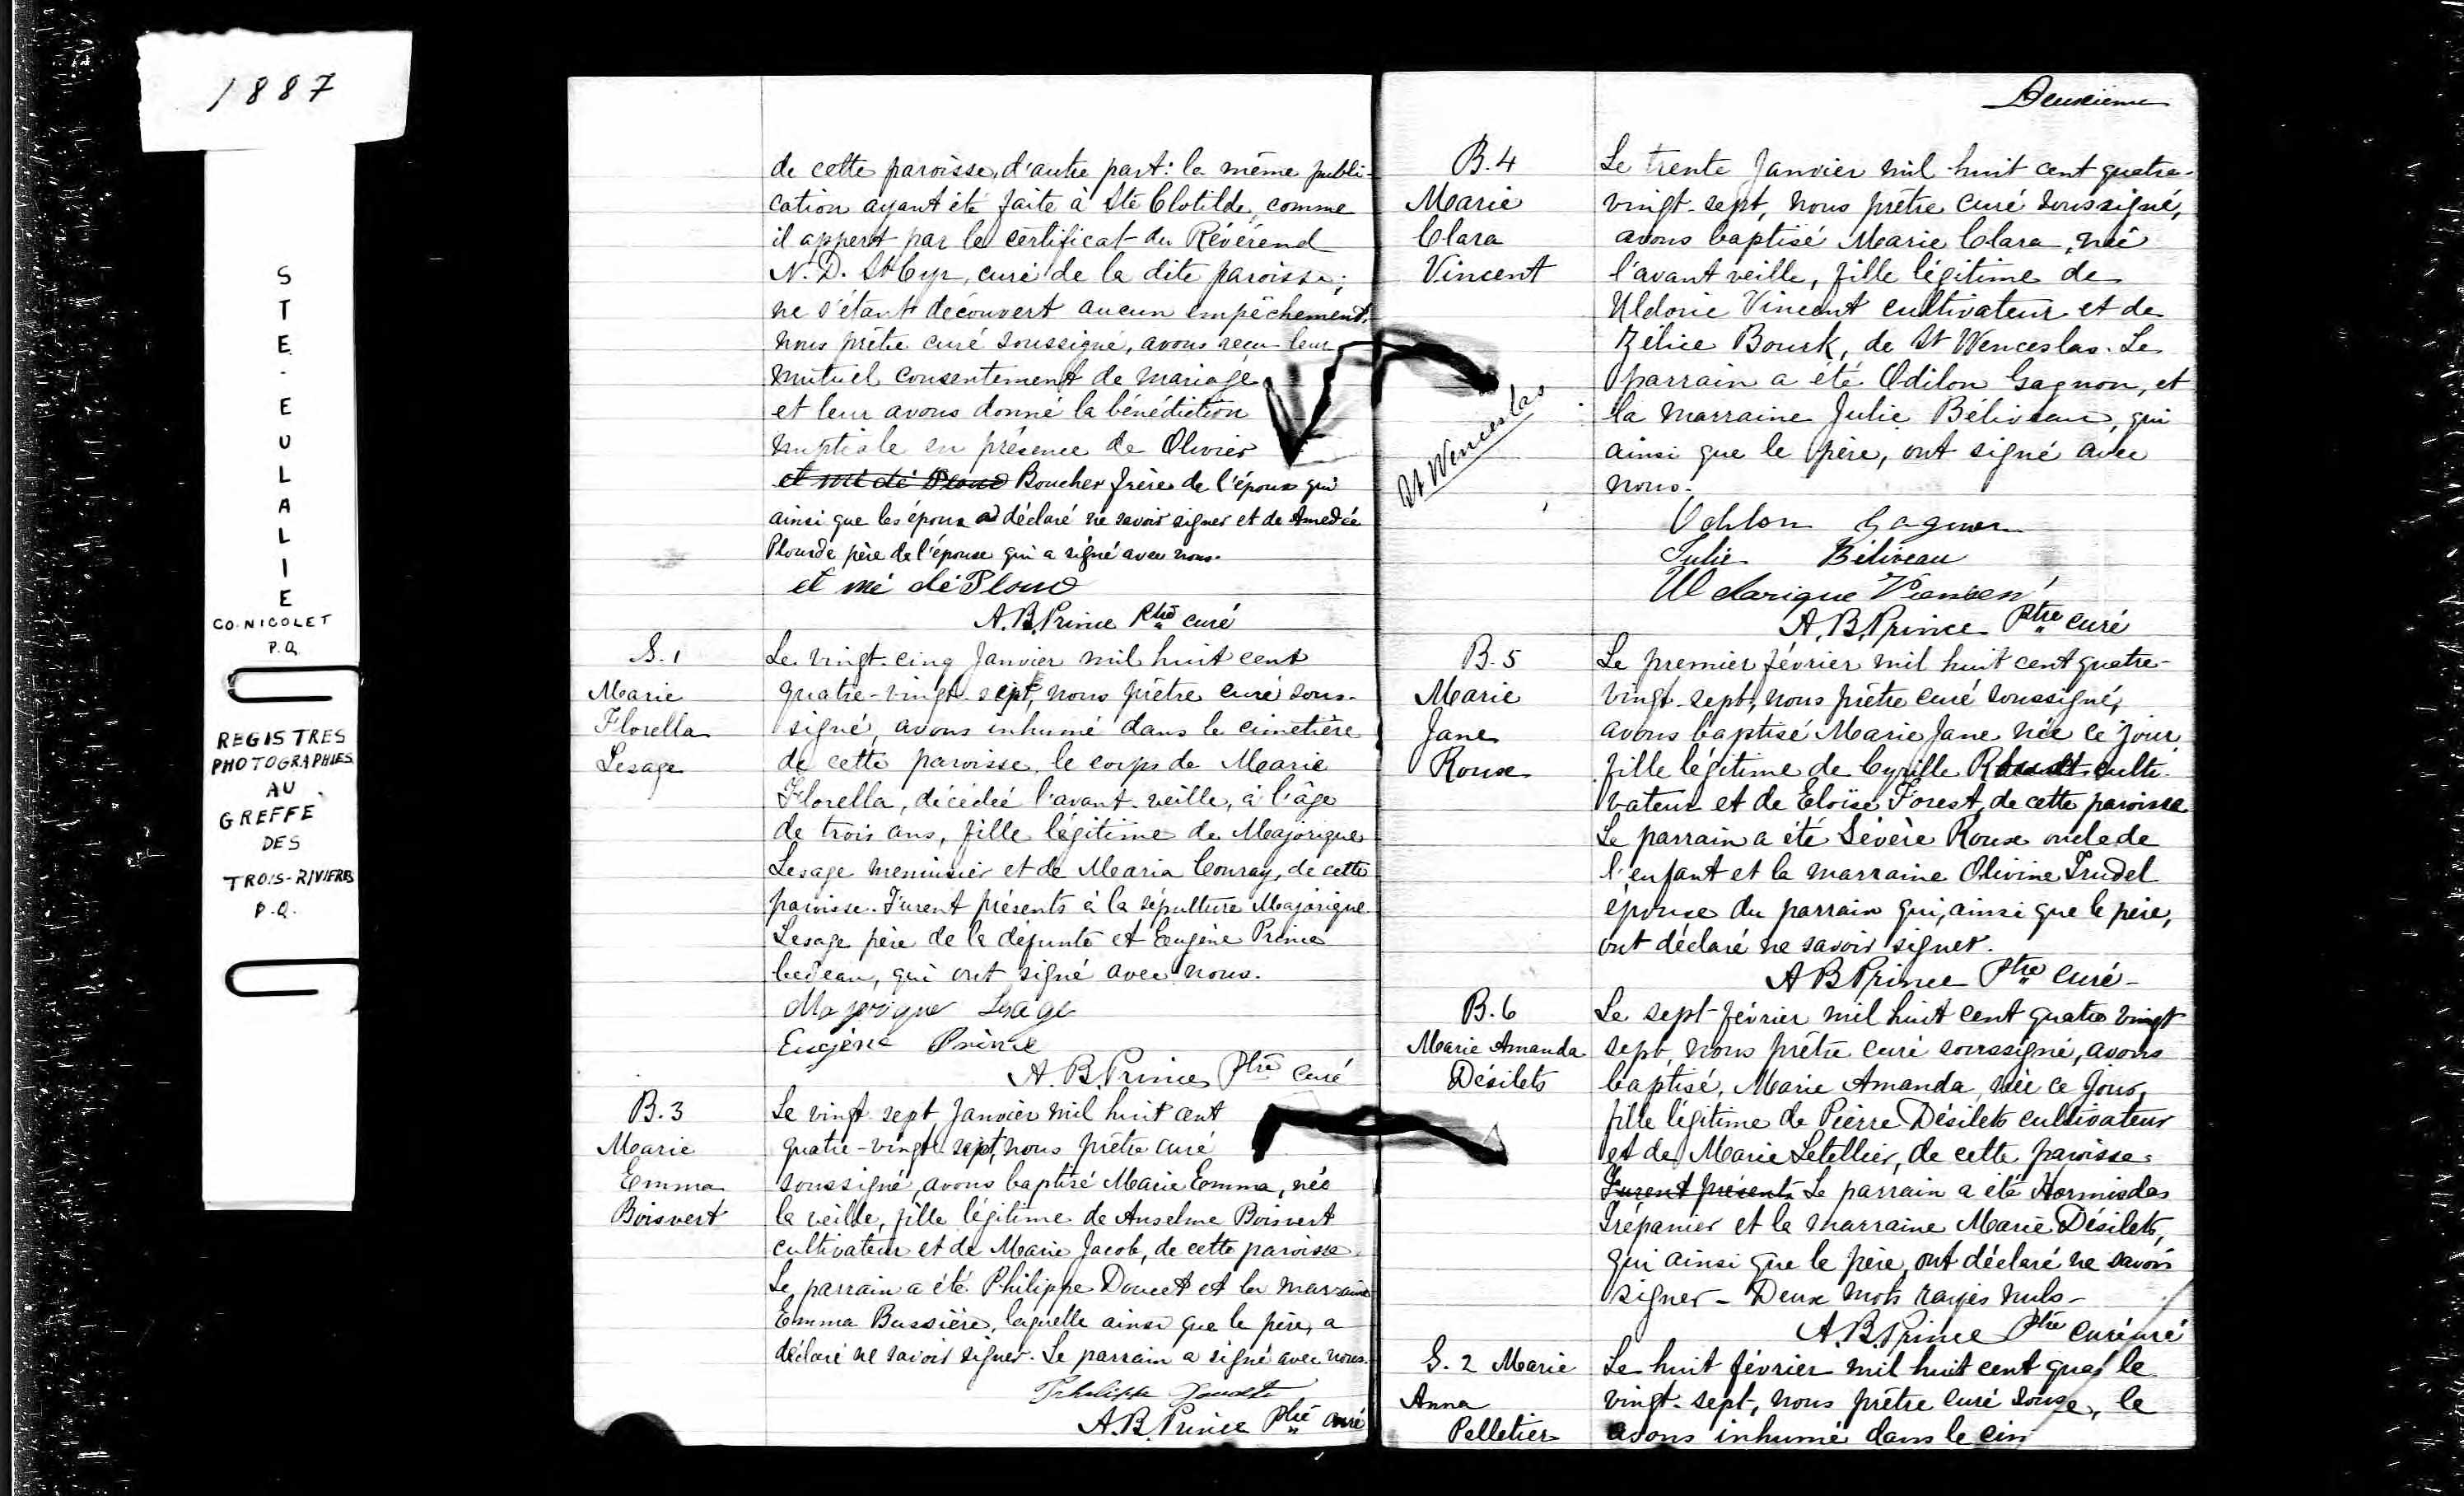 1887
STE. EULALIE
CO. NICOLET
P.Q.
REGISTRES
PHOTOGRAPHIES
AU
GREFFE
DES
TROIS-RIVIERES
P.Q.
de cette paroisse, d'autre part: la même publi-
cation ayant été faite à Ste Clotilde, comme
il appert par le certificat du Révérend
N. D. St Cyr, curé de la dite paroisse;
ne s'étant découvert aucun empêchement,
nous prêtre curé soussigné, avons reçu leur
mutuel consentement de mariage
et leur avons donné la bénédiction
nuptiale en présence de Olivier
et mé dé Ploud Boucher frère de l'époux qui
ainsi que les époux a déclaré ne savoir signer et de Amedée
Plourde père de l'épouse qui a signé avec nous.
et mé dé Ploud
A. B. Prince Ptre curé
S. 1
Marie
Florella
Lesage
Le vingt-cinq Janvier mil huit cent
quatre-vingt-sept, nous prêtre curé sous-
signé, avons inhumé dans le cimetière
de cette paroisse, le corps de Marie
Florella, décédée l'avant-veille, à l'âge
de trois ans, fille légitime de Majorique
Lesage menuisier et de Maria Conray, de cette
paroisse. Furent présents à la sépulture Majorique
Lesage père de la défunte et Eugène Prince
bedeau, qui ont signé avec nous.
Majorique Lesage
Eugène Prince
A. B. Prince Ptre curé
B. 3
Marie
Emma
Boisvert
Le vingt-sept Janvier mil huit cent
quatre-vingt-sept, nous prêtre curé
soussigné, avons baptisé Marie Emma, née
la veille, fille légitime de Anselme Boisvert
cultivateur et de Marie Jacob, de cette paroisse
Le parrain a été Philippe Doucet et la marraine
Emma Bussière, laquelle ainsi que le père, a
déclaré ne savoir signer. Le parrain a signé avec nous.
Philippe Doucet
A. B. Prince Ptre curé
Deuxième
B. 4
Marie
Clara
Vincent
St Wenceslas
Le trente Janvier mil huit cent quatre-
vingt-sept, nous prêtre curé soussigné,
avons baptisé Marie Clara, née
l'avant veille, fille légitime de
Uldoric Vincent cultivateur et de
Zélice Bourk, de St Wenceslas. Le
parrain a été Odilon Gagnon, et
la marraine Julie Béliveau, qui
ainsi que le père, ont signé avec
nous.
Odilon Gagnon
Julie Béliveau
A. B. Prince Ptre curé
B. 5
Marie
Jane
Roux
Le premier février mil huit cent quatre-
vingt-sept, nous prêtre curé soussigné,
avons baptisé Marie Jane née ce jour,
fille légitime de Cyrille culti-
vateur et de Eloïse Forest, de cette paroisse
Le parrain a été Sévère Roux oncle de
l'enfant et la marraine Olivine Trudel
épouse du parrain qui, ainsi que le père,
ont déclaré ne savoir signer.
A B Prince Ptre curé
B. 6
Marie Amanda
Désilets
Le sept février mil huit cent quatre vingt
sept, nous prêtre curé soussigné, avons
baptisé, Marie Amanda, née ce jour,
fille légitime de Pierre Désilets cultivateur
et de Marie Letellier, de cette paroisse.
Furent présents Le parrain a été Hormisdas
Trépanier et la marraine Marie Désilets,
qui ainsi que le père, ont déclaré ne savoir
signer - Deux mots rayés nuls -
A. B. Prince Ptre curé
S. 2 Marie
Anna
Pelletier
Le huit février mil huit cent
vingt-sept, nous prêtre curé
avons inhumé dans le